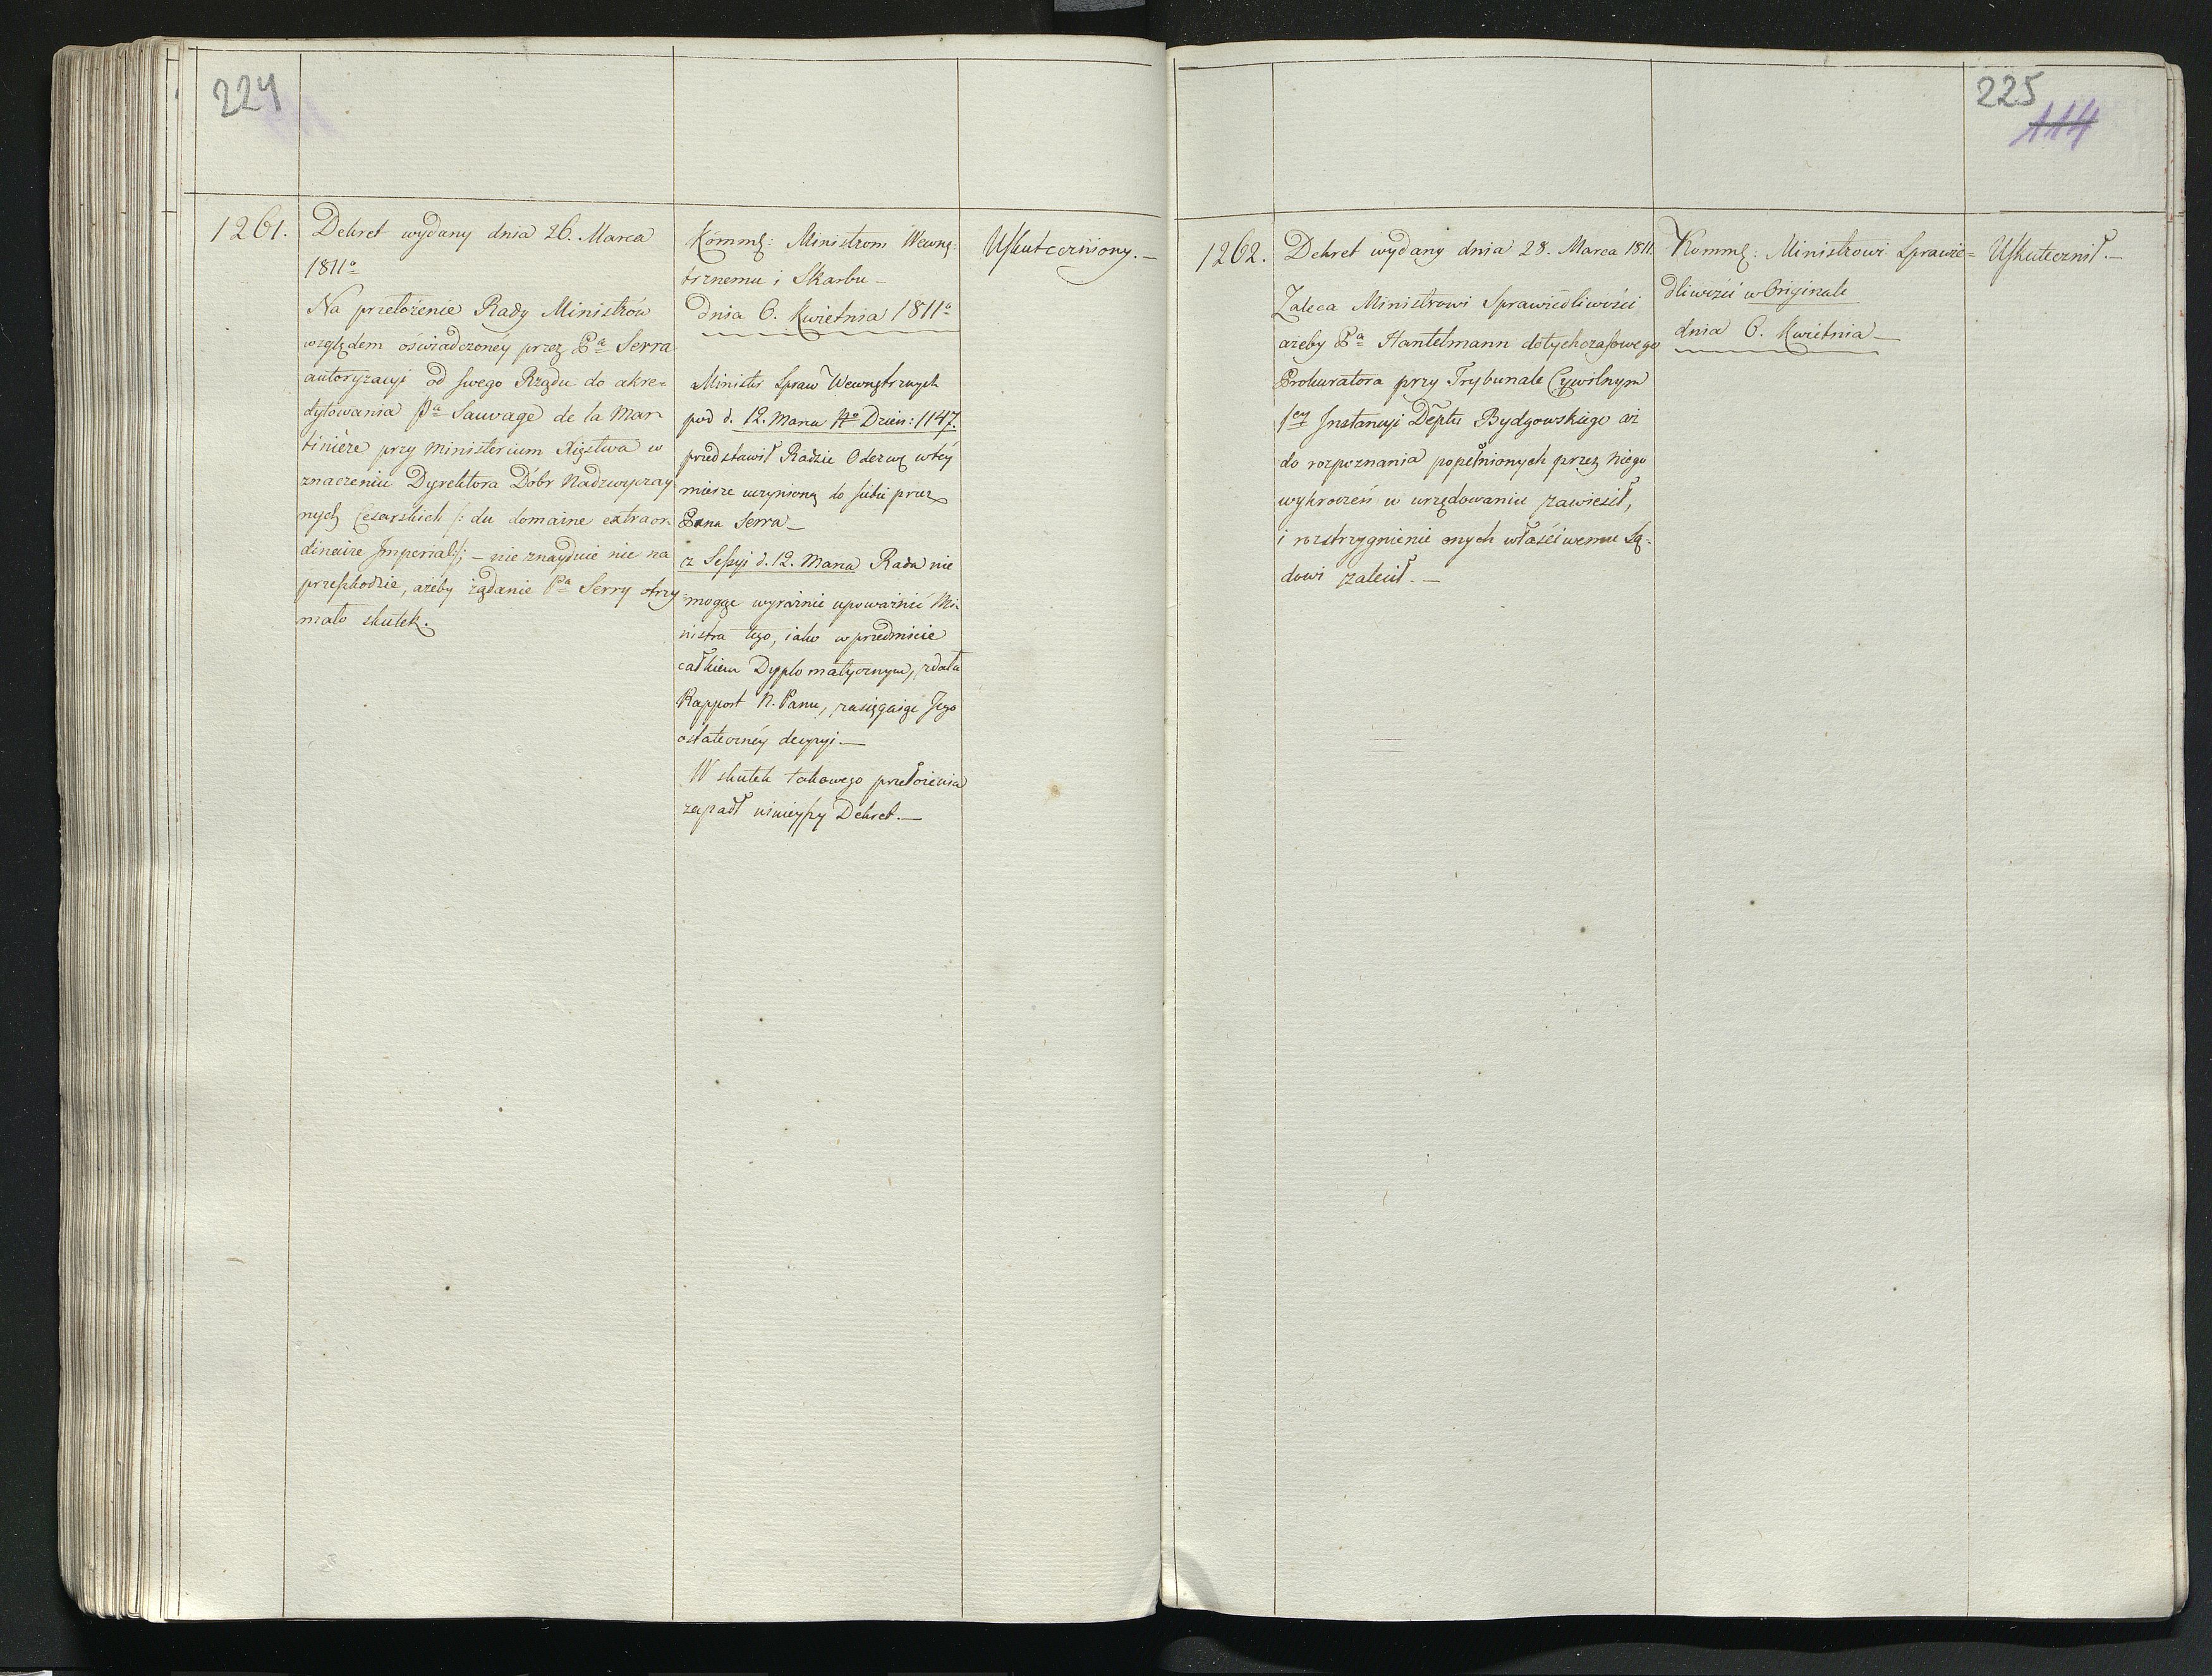 224
1261.
Dekret wydany dnia 26. Marca
1811º
Na przełożenie Rady Ministrów
względem oświadczonéy przez Pª Serra
autoryzacyi od swego Rządu do akre=
dytowania Pª Sauvage de la Mar
tinière przy Ministerium Xięstwa w
znaczeniu Dyrektora Dóbr Nadzwyczay
nych Cesarskich /: du domaine extraor=
dinaire Imperial:/; – nie znayduie nic na
przeszkodzie, ażeby żądanie Pª Serry otrzy
mało skutek.
Kommq: Ministrom Wewnę=
trznemu i Skarbu –
dnia 6. Kwietnia 1811º
Minister Spraw Wewnętrznych
pod d. 12. Marca Nº Dzien: 1147.
przedstawił Radzie Odezwę w téy
mierze uczynioną do siebie przez
Pana Serra –
z Sessyi d. 12. Marca Rada nie
mogąc wyraźnie upoważnić Mi=
nistra tego, iako w przedmiocie
całkiem Dyplomatycznym, zdała
Rapport N. Panu, zasięgaiąc Jego
ostatecznéy decyzyi. –
W skutek takowego przełożenia
zapadł ninieyszy Dekret. –
Uskuteczniony. –
225
114
1262.
Dekret wydany dnia 28. Marca 1811.
Zaleca Ministrowi Sprawiedliwości
ażeby Pª Hantelmann dotychczasowego
Prokuratora przy Trybunale Cywilnym
1ey Instancyi Deptu Bydgoskiego aż
do rozpoznania popełnionych przez niego
wykroczeń w urzędowaniu zawiesił,
i rozstrzygnienie onych właściwemu Są=
dowi zalecił. –
Kommq: Ministrowi Sprawie=
dliwości w Originale
dnia 6. Kwietnia –
Uskutecznił. –